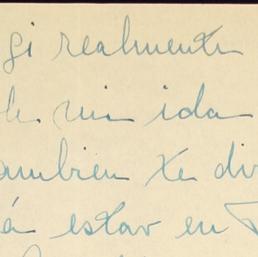 gi realmente
mi ida
ambien te di
á estar en